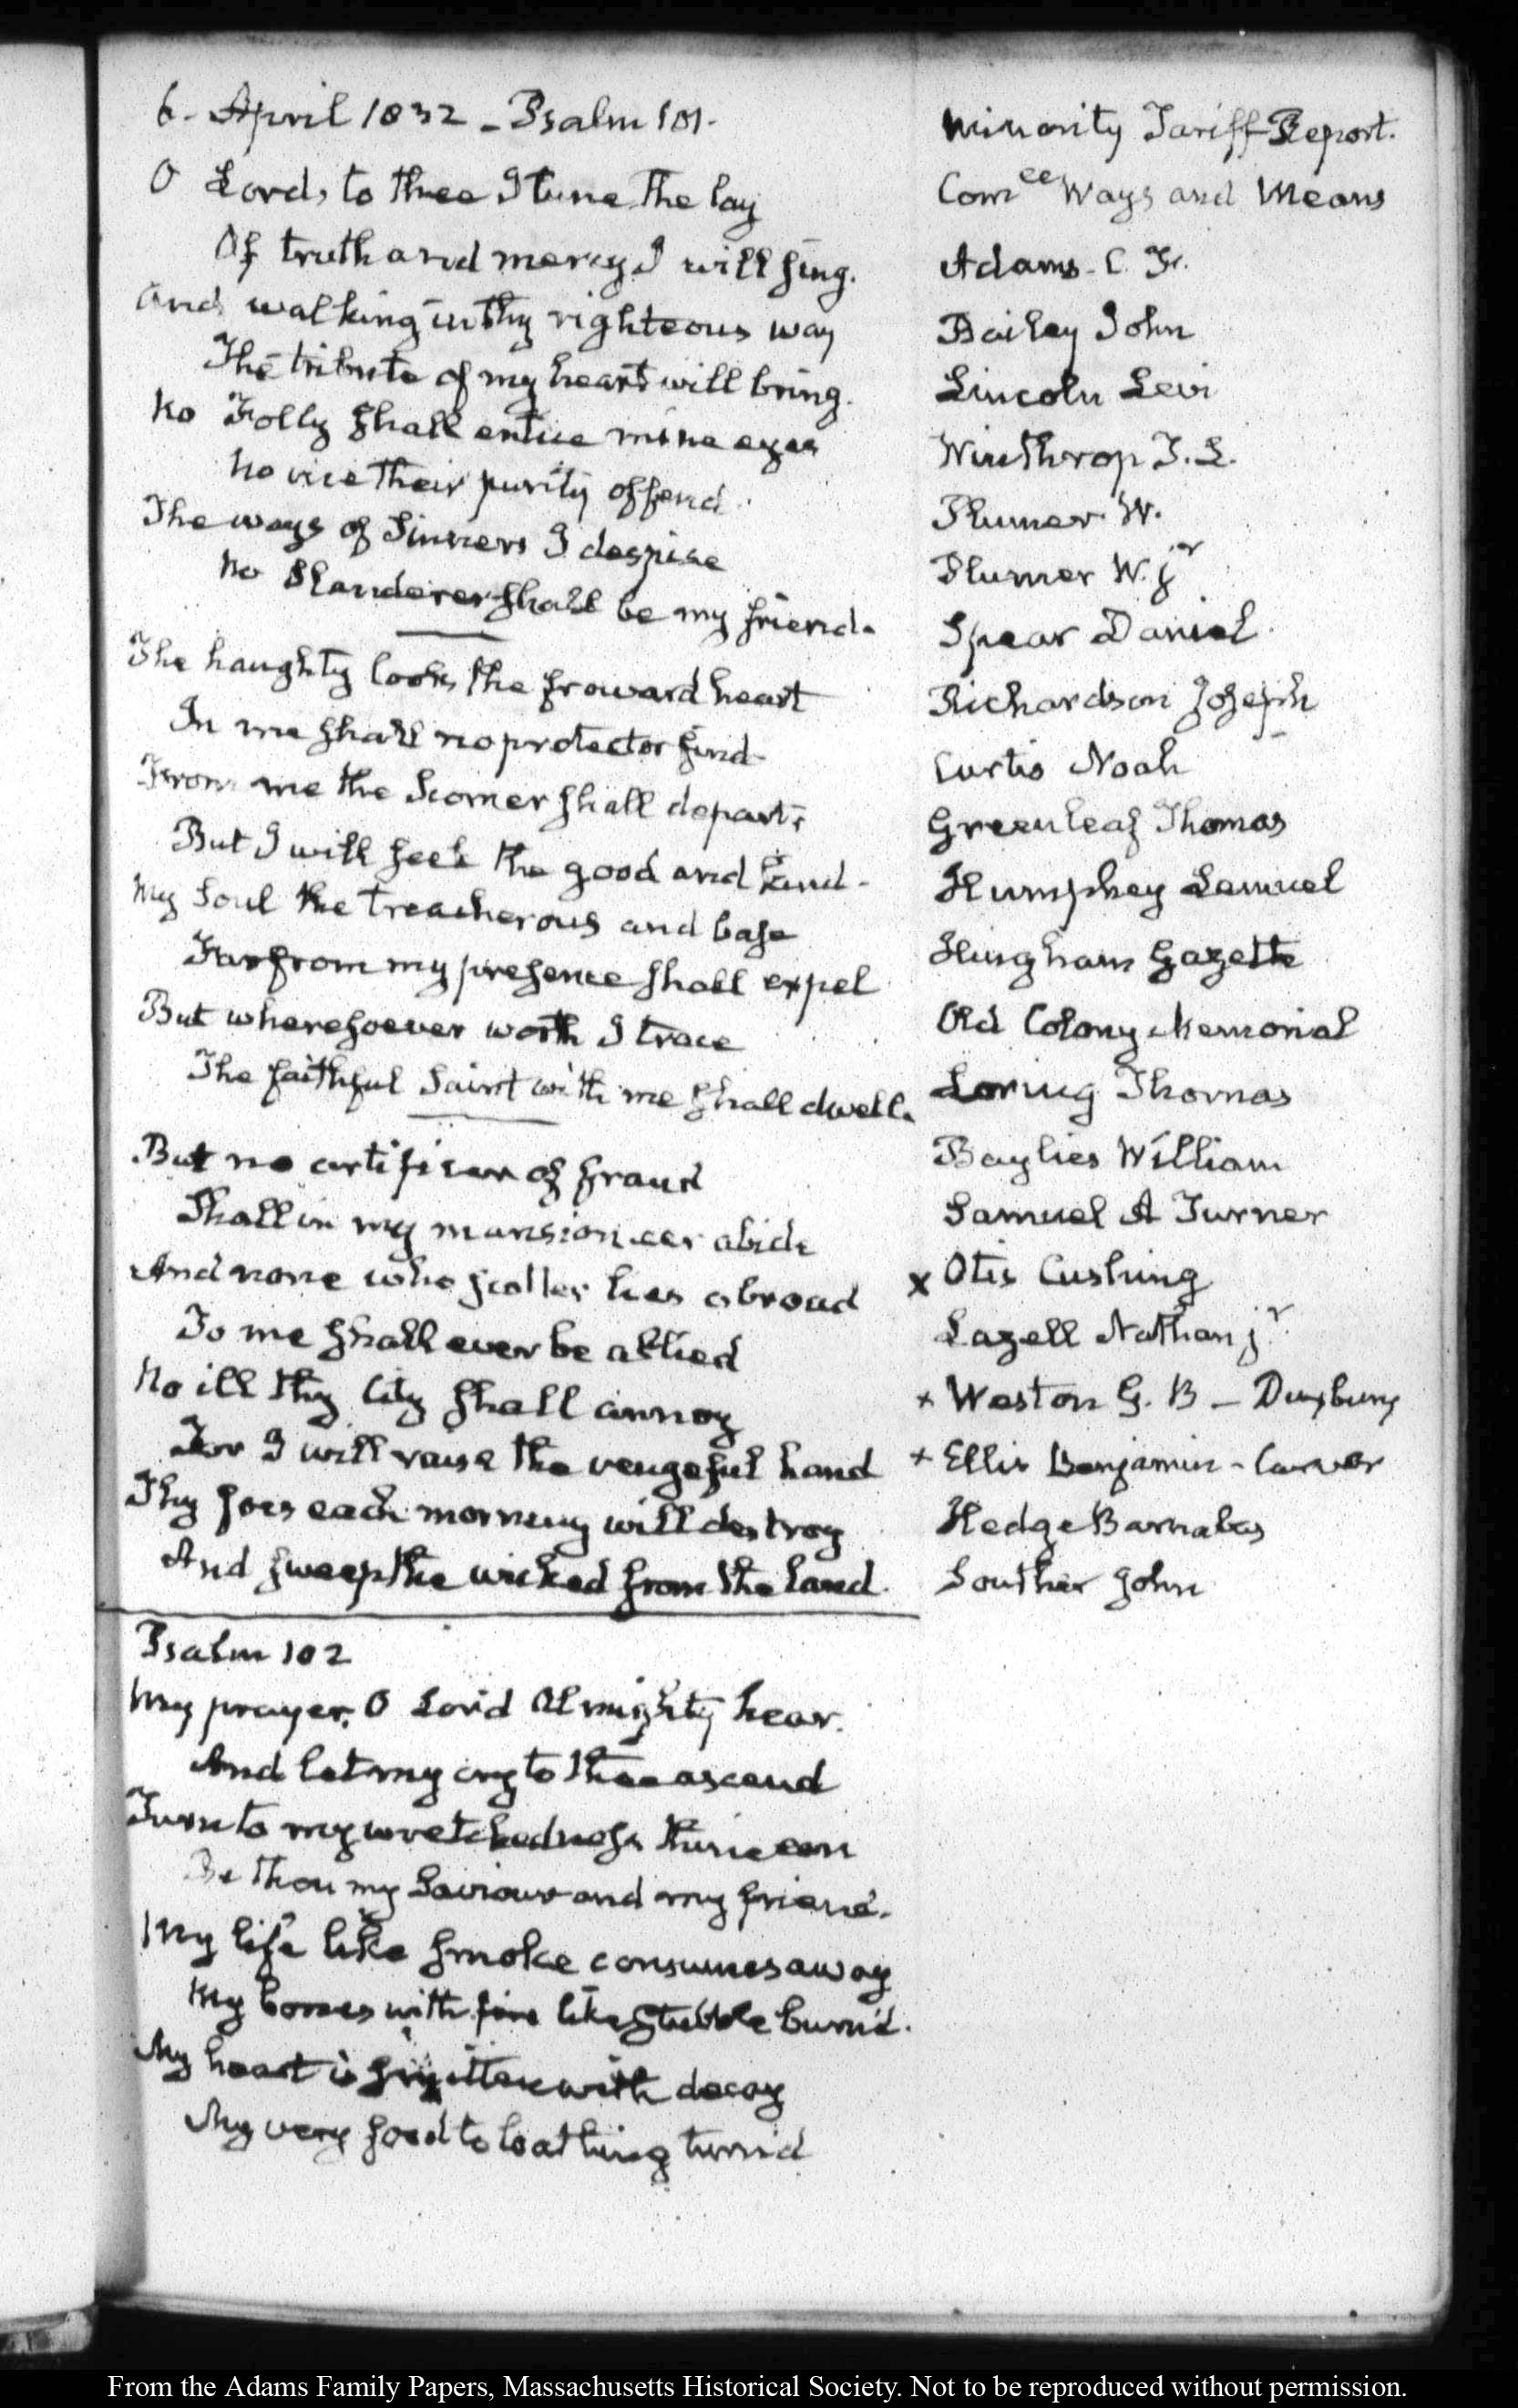 6. April 1832 - Psalm 101.
O Lord, to thee I tune the lay
Of truth and mercy I will sing.
And walking in thy righteous way
The tribute of my heart will bring.
No Folly shall entice mine eyes
No vice their purity offend.
The ways of Sinners I despise
No Slanderer shall be my friend.
The haughty looks, the froward heart
In me shall no protector find
From me the Scorner shall depart,
But I will seek the good and kind.
My Soul the treacherous and base
Far from my presence shall expel
But wheresoever worth I trace
The faithful Saint with me shall dwell.
But no artificer of fraud
Shall in my mansion eer abide
And none who scatter lies abroad
To me shall ever be allied
No ill thy City shall annoy
For I will raise the vengeful hand
Thy foes each morning will destroy
And sweep the wicked from the land.
Psalm 102
My prayer, O Lord Almighty hear.
And let my cry to thee ascend
Turn to my wretchedness thine ear
Be thou my Saviour and my friend.
My life like smoke consumes away
My bones with fire like stubble burn'd.
My heart is smitten with decay
My very food to loathing turn'd
Minority Tariff Report.
Comee Ways and Means
Adams. C. F.
Bailey John
Lincoln Levi
Winthrop T. L.
Plumer W.
Plumer W. jr
Spear Daniel.
Richardson Joseph
Curtis Noah
Greenleaf Thomas
Humphrey Lemuel
Hingham Gazette
Old Colony Memorial
Loring Thomas
Baylies William
Samuel A Turner
x Otis Cushing
Lazell Nathan jr
+ Weston G. B - Duxbury
+ Ellis Benjamin - Carver
Hedge Barnabas
Souther John
From the Adams Family Papers, Massachusetts Historical Society. Not to be reproduced without permission.